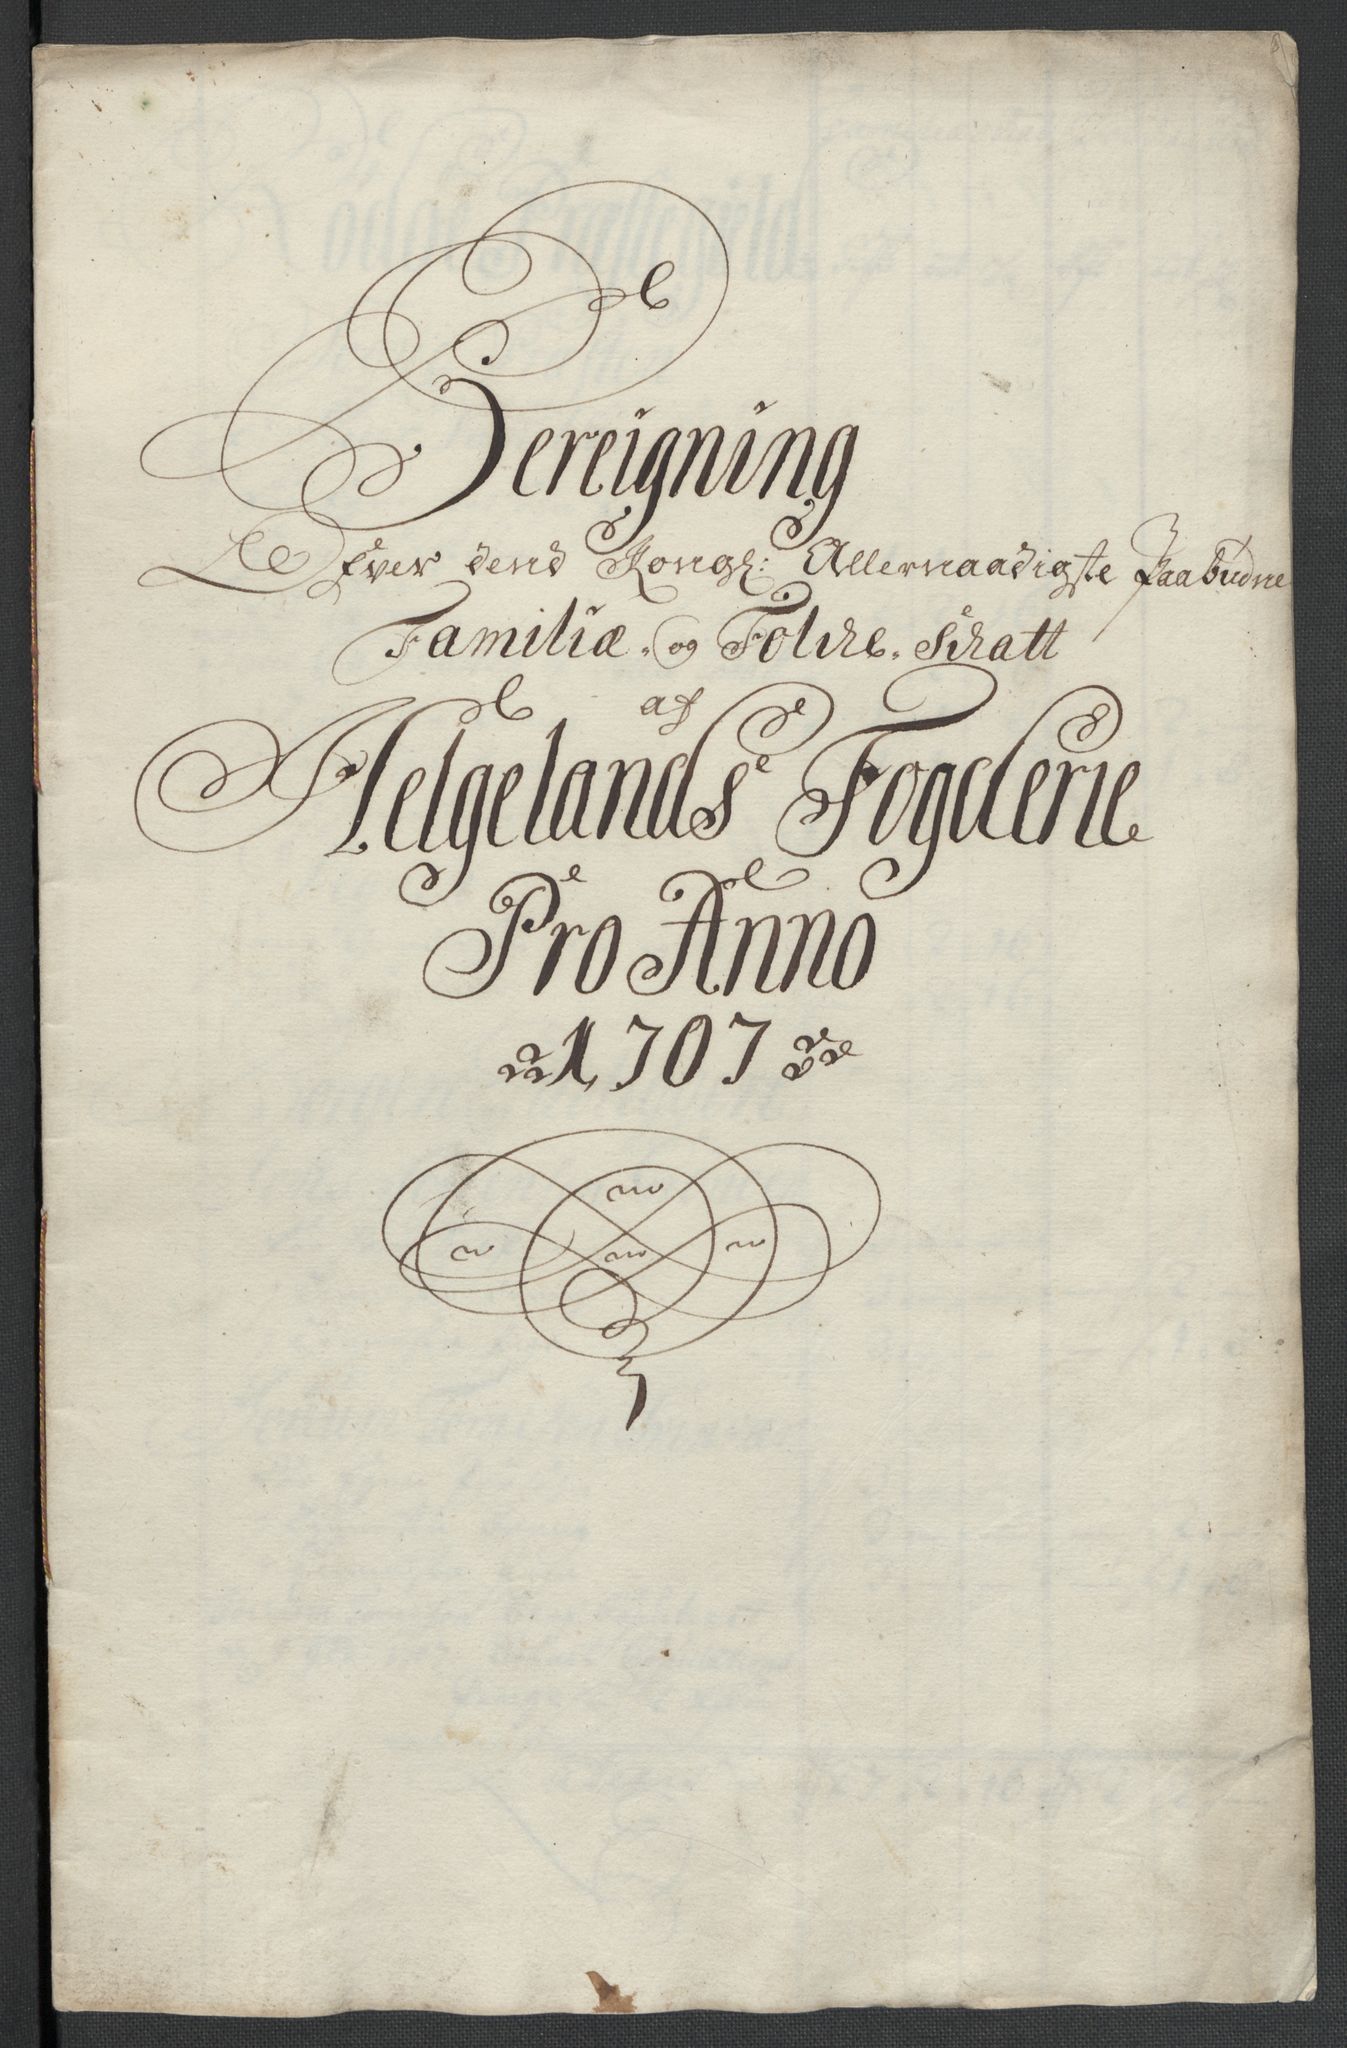 Bereigning
Ofver dend Kongl: Allernaadigste Paabudne
Familiæ- og Folche-Schatt
af
Helgelands Fogderie
Pro Anno
1707